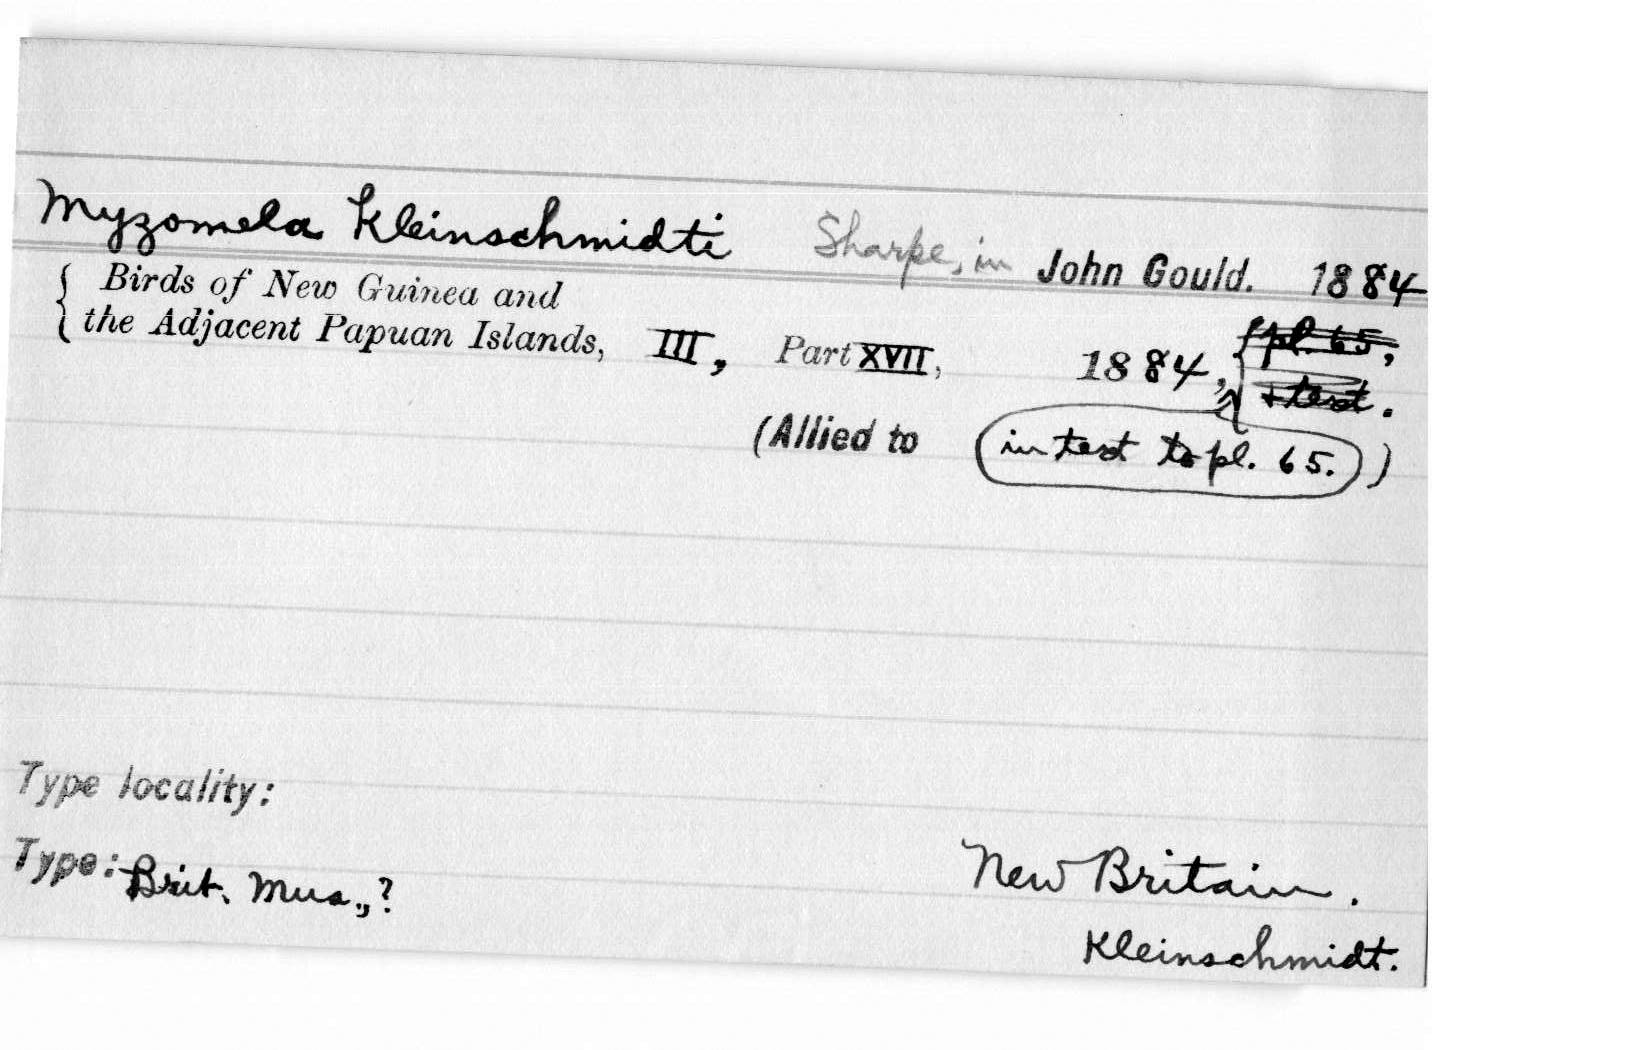 Myzomela Kleinschmidti Sharpe, in John Gould. 1884
Birds of New Guinea and
the Adjacent Papuan Islands, III, Part XVII, 1884, { pl. 65,
+ text.
(Allied to in text to pl. 65.)
Type locality:
New Britain.
Type: Brit. Mus., ?
Kleinschmidt.